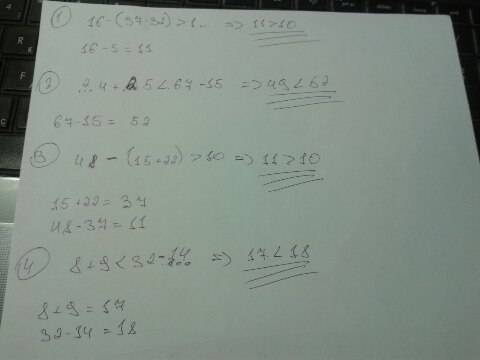 1 16-(37-32)>1.. => 11>10
16-5=11
2 4+ 5<67-15 => 49<52
67-15= 52
3 48-(15+22)>10 => 11>10
15+22=37
48-37=11
4 8+9<32-14 => 17<18
8+9=17
32-14=18